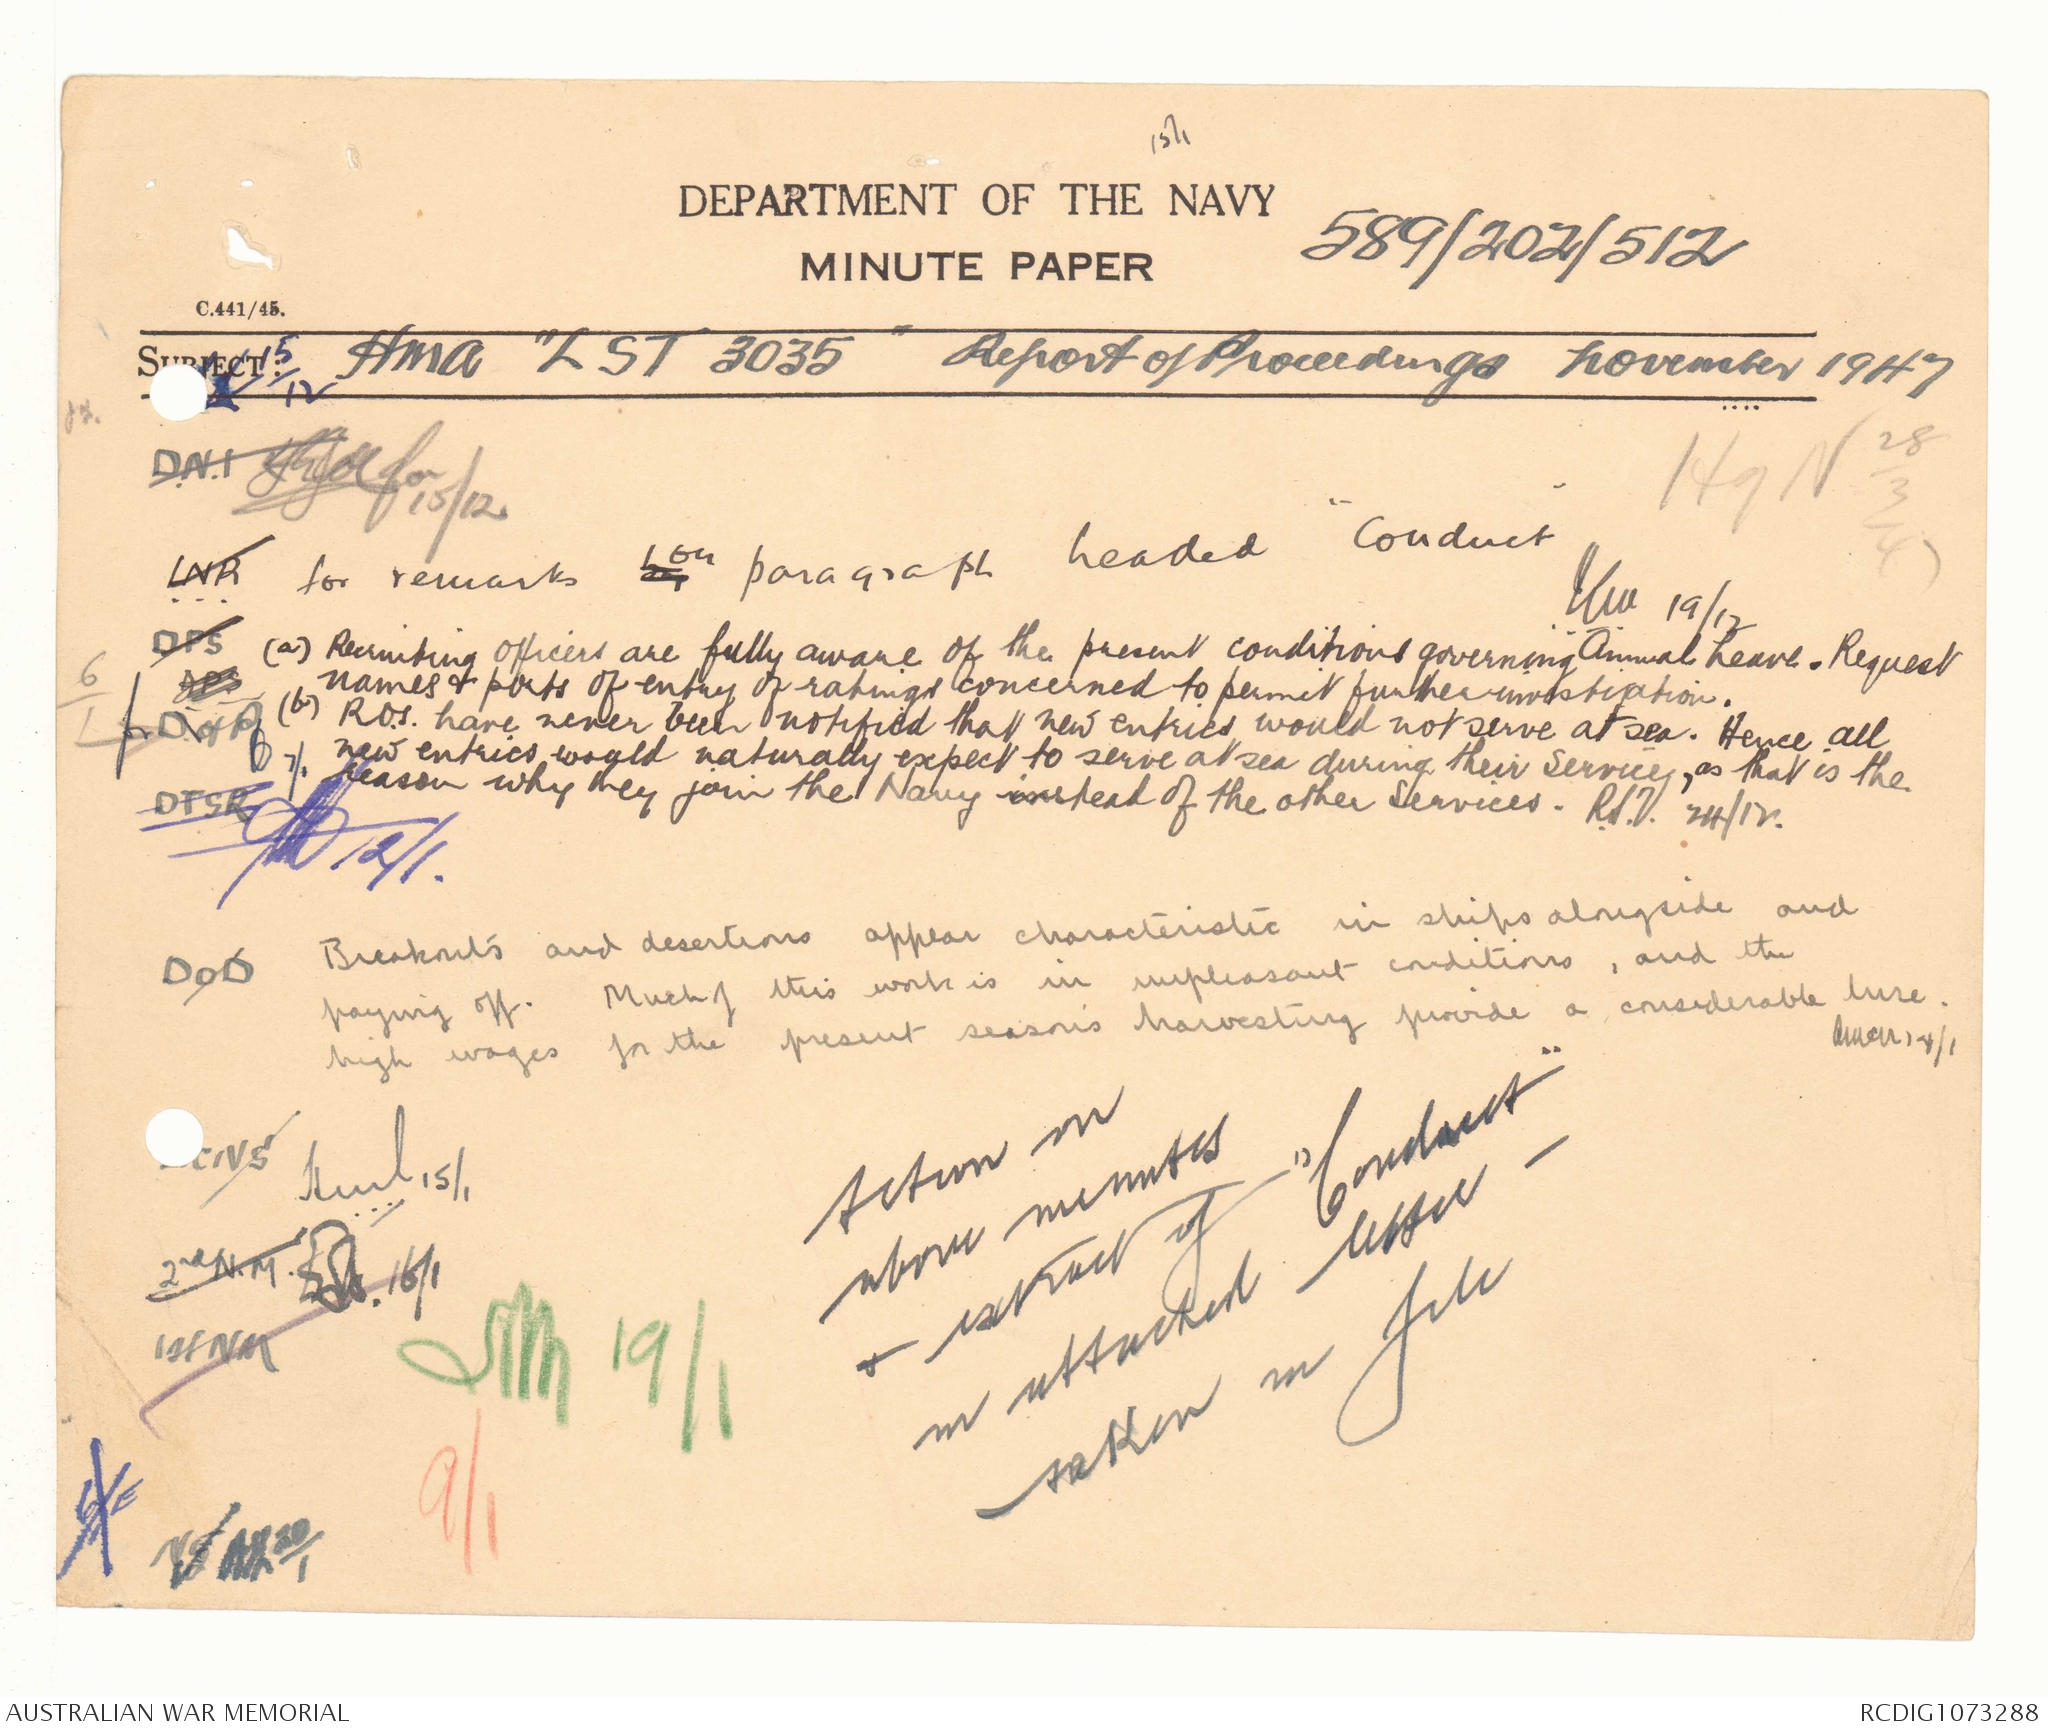 15/1
DEPARTMENT OF THE NAVY
MINUTE PAPER
589/202/512
C.441/45.
SUBJECT: HMA "LST 3035" Report of Proceedings November 1947
15/12
DNI
15/12
HqN 28/3/4
DNR for remarks on paragraph headed "Conduct"
19/12
DPS (a) Recruiting officers are fully aware of the present conditions governing Annual Leave. Request
names & ports of entry of ratings concerned to permit further investigation.
6/1
(b) R.O.s. have never been notified that new entries would not serve at sea. Hence all
7/1
new entries would naturally expect to serve at sea during their Service, as that is the
reason why they join the Navy instead of the other Services. 24/12.
DTSR
12/1.
DOD Breakouts and desertions appear characteristic in ships alongside and
paying off. Much of this work is in unpleasant conditions, and the
high wages for the present season's harvesting provide a considerable lure.
14/1
DCNS 15/1
2nd N.M. 16/1
1st NM
19/1
9/1
20/1
Action on
above minutes
+ extract of "Conduct"
in attached letter -
taken in file
AUSTRALIAN WAR MEMORIAL
RCDIG1073288